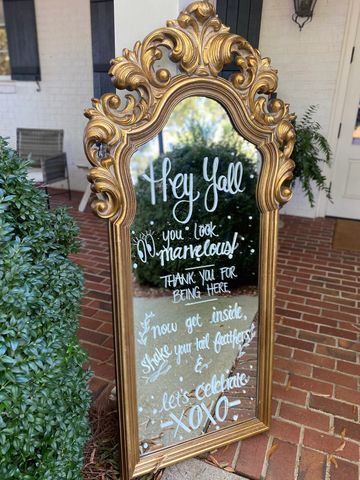 Hey Yall
you look
marvelous!
THANK YOU FOR
BEING HERE
now get inside,
shake your tail feathers
&
let's celebrate
-XOXO-